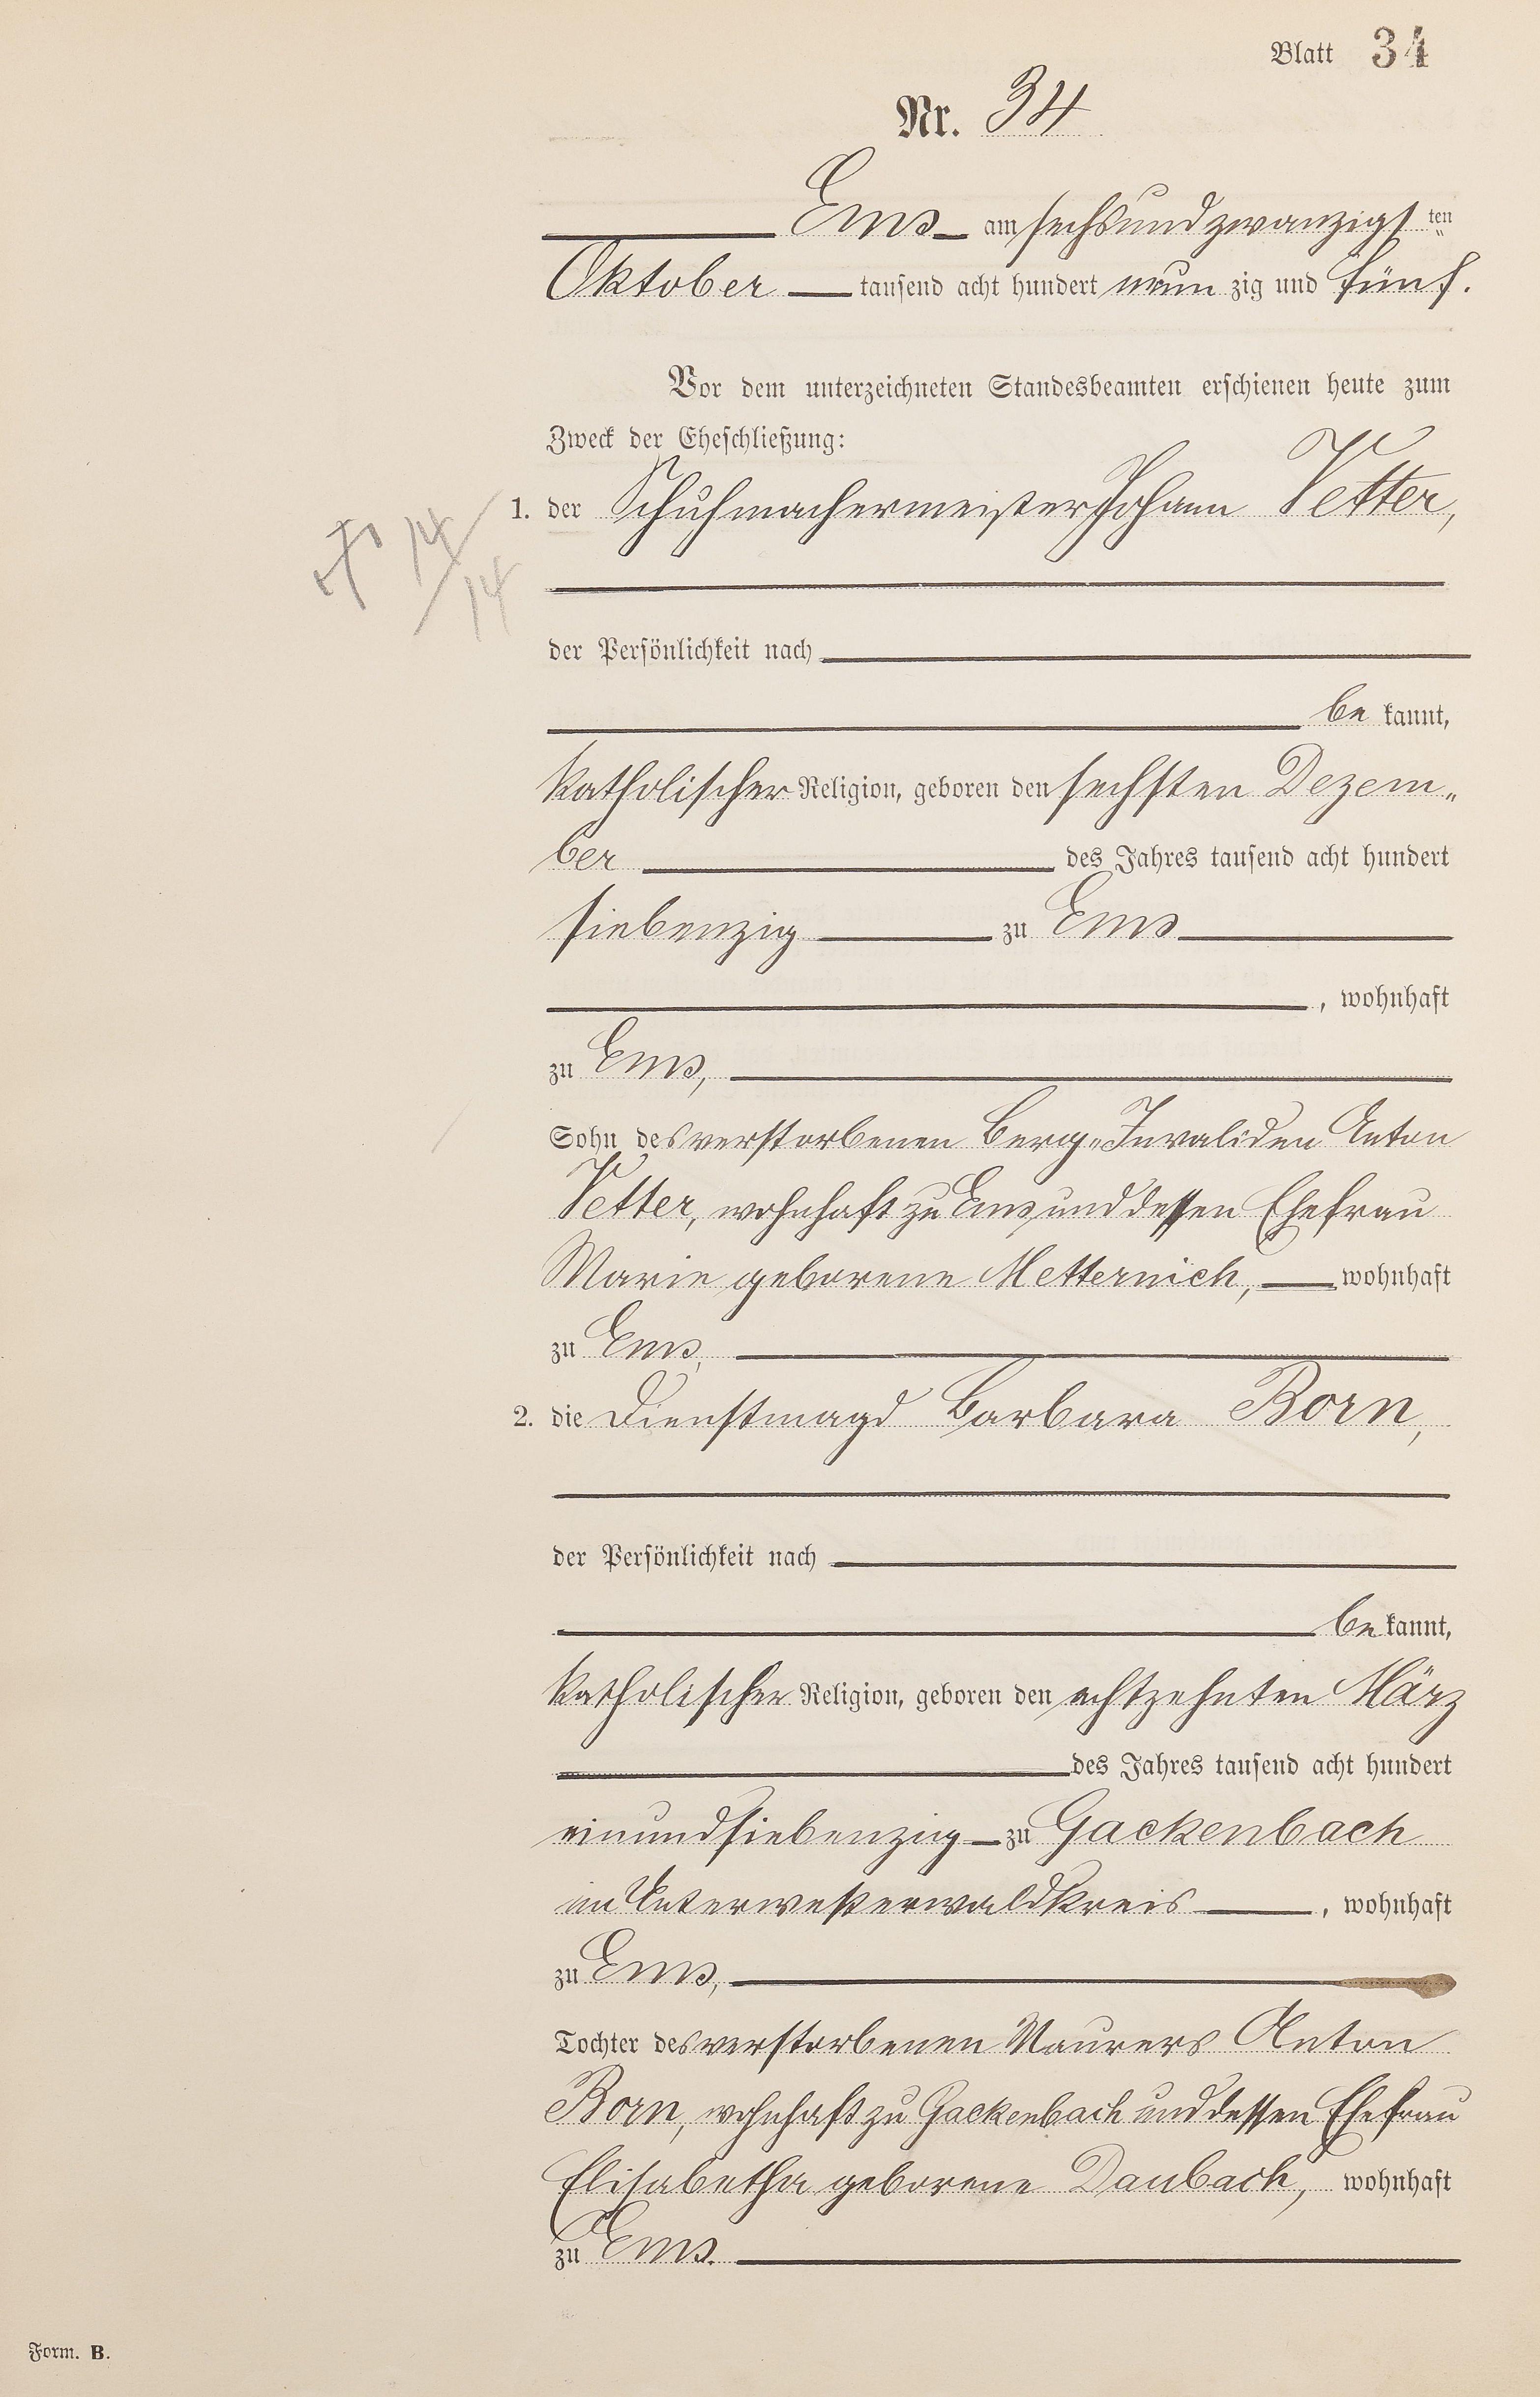 Blatt 34
Nr. 34
Ems am sechsundzwanzigsten
Oktober tausend acht hundert neunzig und fünf.
Vor dem unterzeichneten Standesbeamten erschienen heute zum
Zweck der Eheschließung:
1. der Schuhmachermeister Johann Vetter,
14/14
der Persönlichkeit nach
bekannt,
katholischer Religion, geboren den sechsten Dezem„
ber des Jahres tausend acht hundert
siebenzig zu Ems
, wohnhaft
zu Ems,
Sohn des verstorbenen Berg„Invaliden Anton
Vetter, wohnhaft zu Ems, und dessen Ehefrau
Marie geborene Metternich, wohnhaft
zu Ems,
2. die Dienstmagd Barbara Born,
der Persönlichkeit nach
bekannt,
katholischer Religion, geboren den achtzehnten März
des Jahres tausend acht hundert
einundsiebenzig zu Gackenbach
im Unterwesterwaldkreis , wohnhaft
zu Ems,
Tochter des verstorbenen Maurers Anton
Born, wohnhaft zu Gackenbach und dessen Ehefrau
Elisabetha geborene Daubach, wohnhaft
zu Ems.
Form. B.